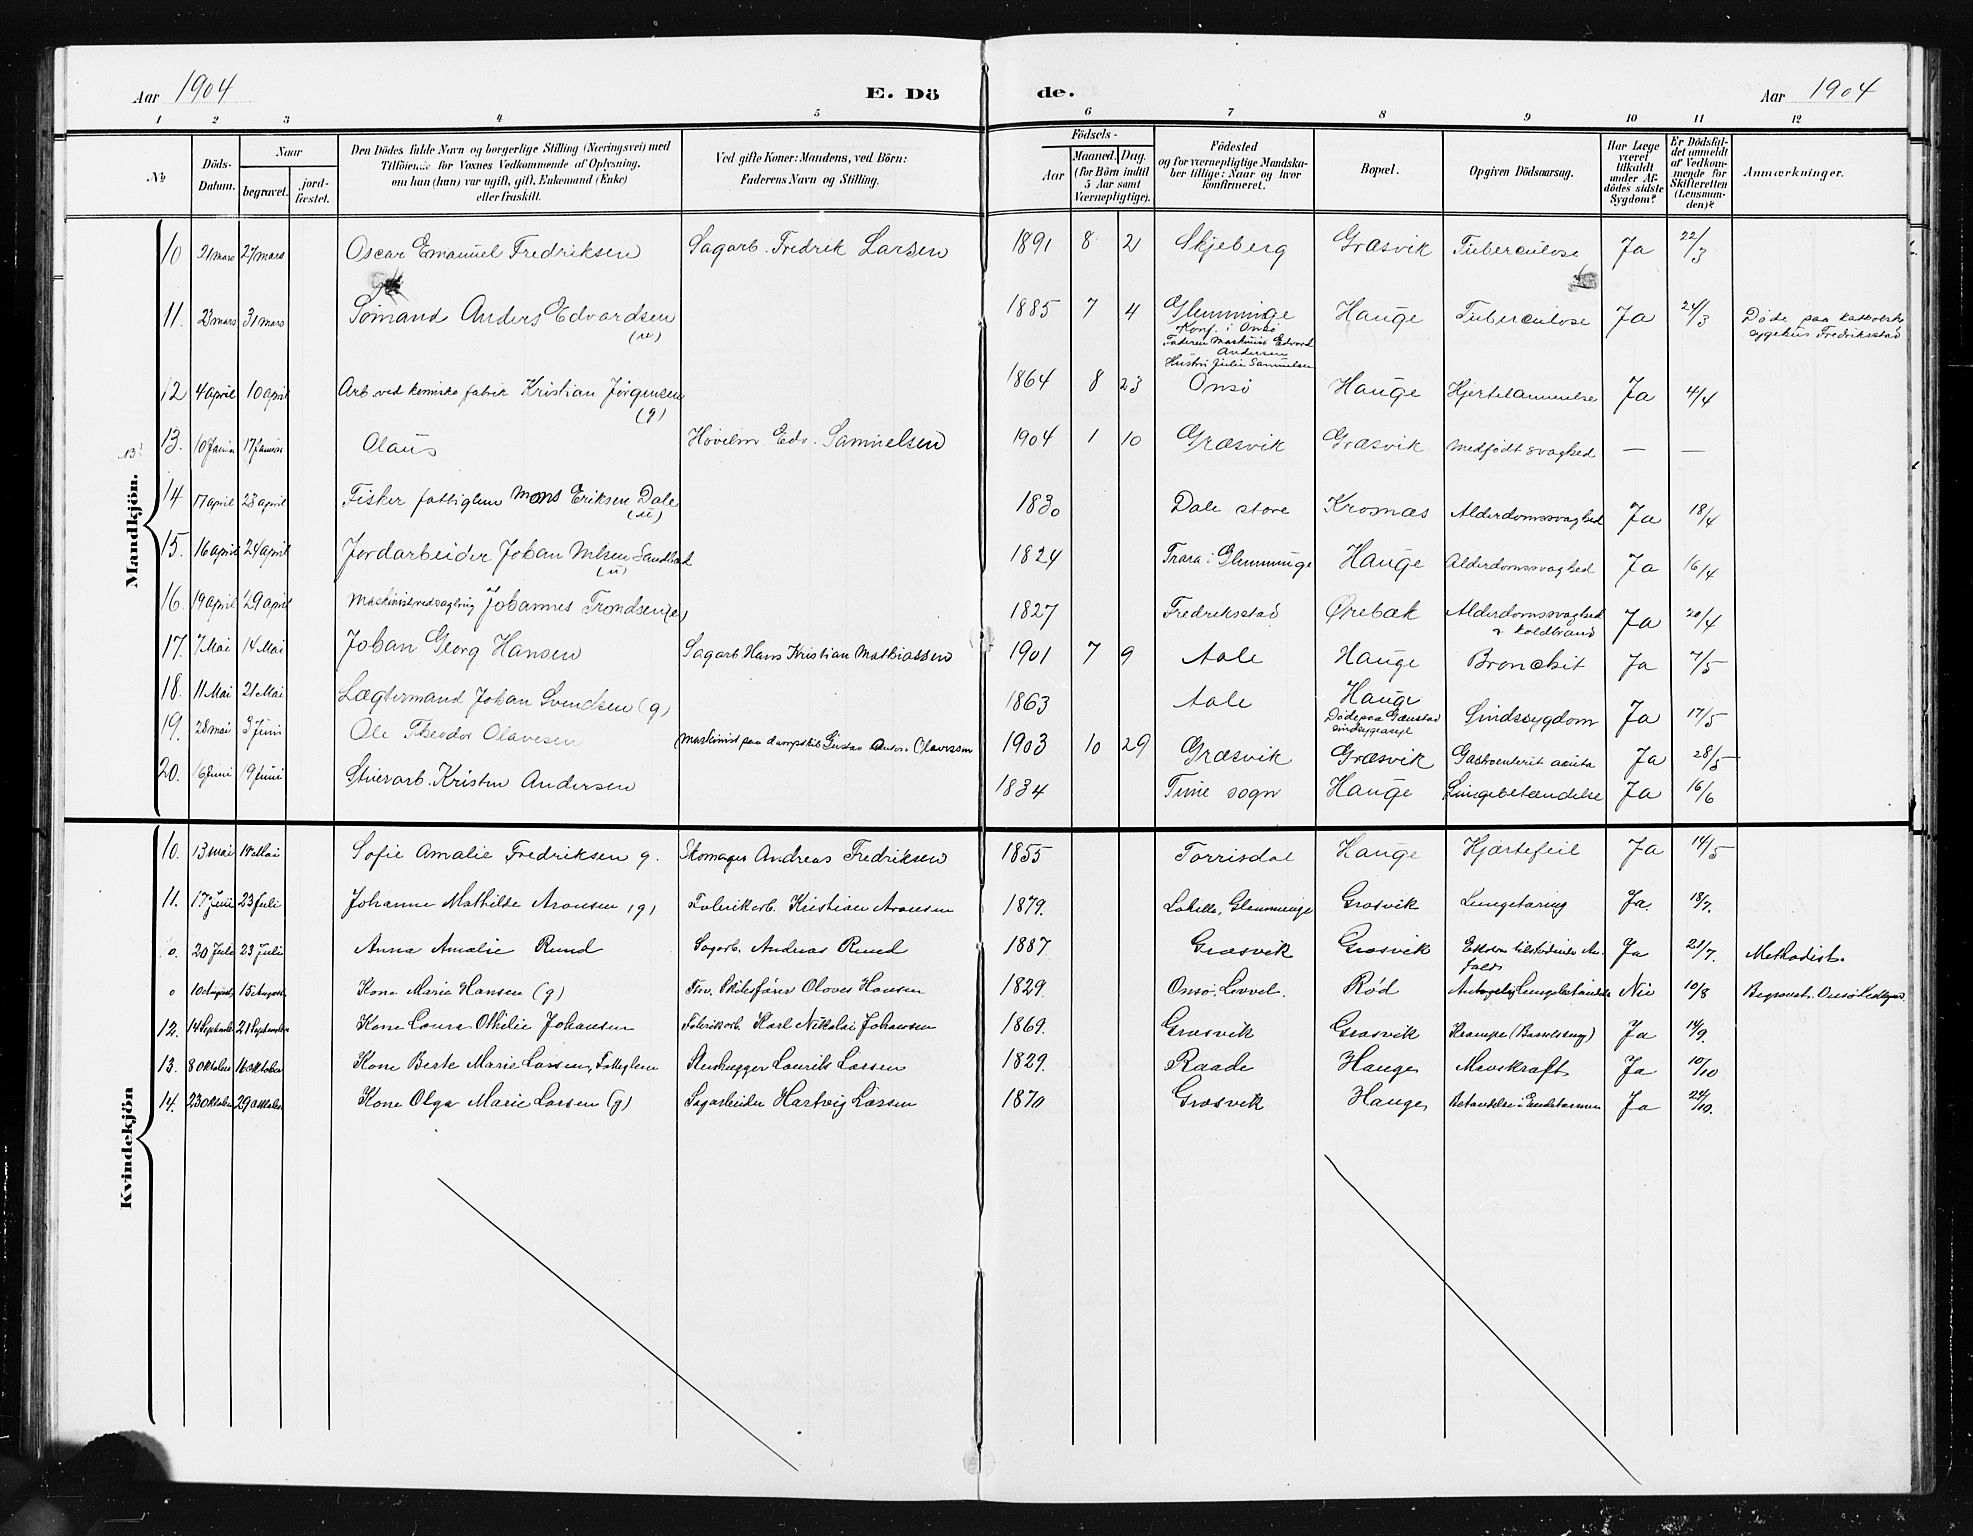 Aar 1904 E. Dö de. Aar 1904
1 2 3 4 5 6 7 8 9 10 11 12
№
Döds-
Datum.
Naar
begravet.
jord-
fæstet.
Den Dödes fulde Navn og borgerlige Stilling (Næringsvei) med
Tilföiende for Voxnes Vedkommende af Oplysning,
om han (hun) var ugift, gift, Enkemand (Enke)
eller fraskilt.
Ved gifte Koner: Mandens, ved Börn:
Faderens Navn og Stilling.
Födsels-
Aar
Maaned. Dag.
(for Börn indtil
5 Aar samt
Værnepligtige).
Födested
og for værnepligtige Mandska-
ber tillige: Naar og hvor
konfirmeret.
Bopæl.
Opgiven Dödsaarsag.
Har Læge
været
tilkaldt
under Af-
dödes sidste
Sygdom?
Er Dödsfal-
det anmeldt
af Vedkom-
mende for
Skifteretten
(Lensman-
den)?
Anmærkninger.
Mandkjön.
10 21 mars 27 mars Oscar Emanuel Fredriksen Sagarb. Fredrik Larsen 1891 8 21 Skjeberg Græsvik Tuberculose Ja 22/3
11. 23 mars 31 mars Sömand Anders Edvardsen 1885 7 4 Glemminge Hauge Tuberculose Ja 24/3 Døde paa katholsk
(u) Konf. i Onsö sygehus Fredriksstad
Faderen Maskinist Edvard
Andersen
Hustru Julie Samuelsen
12 4 april 10 april Arb. ved kemiske fabrik Kristian Jörgensen 1864 8 23 Onsö Hauge Hjertelammelse Ja 4/4
(g)
13. 10 Januar 17 Januar Olaus Høvelm. Edv. Samuelsen 1904 1 10 Græsvik Græsvik Medfödt svaghed — —
14 17 april 23 april Fisker fattiglem Mons Eriksen Dale 1830 Dale store Krosnæs Alderdomssvaghed Ja 18/4
(u)
15. 16 april 24 april Jordarbeider Johan Nilsen 1824 Trara i Glemminge Hauge Alderdomssvaghed Ja 16/4
(u)
16. 19 april 29 april Maskinist ved sagbrug Johannes Trondsen 1827 Fredriksstad Ørebæk Alderdomssvaghed Ja 20/4
& koldbrand
17. 7 Mai 14 Mai Johan Georg Hansen Sagarb. Hans Kristian Mathiassen 1901 7 9 Aale Hauge Bronchit Ja 7/5
18. 11 Mai 21 Mai Lægtermand Johan Svendsen (g) 1863 Aale Hauge Sindssygdom Ja 17/5
Döde paa Gaustad
sindsygeasyl
19. 28 mai 3 Juni Ole Theodor Olavesen Maskinist paa dampskib Gustav Anton Olavssen 1903 10 29 Græsvik Græsvik Gastroenterit acuta Ja 28/5
20. 16 Juni 9 Juni Stuerarb. Kristen Andersen 1834 Tune sogn Hauge Lungebetændelse Ja 16/6
Kvindekjön
10. 13 mai 18 Mai Sofie Amalie Fredriksen g. Skomager Andreas Fredriksen 1855 Torrisdal Hauge Hjærtefeil Ja 14/5
11. 17 Juli 23 Juli Johanne Mathilde Aronsen (g) Fabrikarb. Kristian Aronsen 1879. Lahelle, Glemminge Græsvik Lungetæring Ja. 18/7.
0. 20 Juli 23 Juli Anna Amalie Rund Sagarb. Andreas Rund 1887 Græsvik Græsvik Ja 21/7. Methodist.
0 10 August 15 August Kone Marie Hansen (g) Fhv. Skibsfører Olaves Hansen 1829. Onsø. Rød Lungebetændelse Nei 10/8 Begravet i Onsø
12. 14 September 21 September Kone Laura Othilie Johansen Fabrikarb. Karl Nikolai Johansen 1869. Græsvik Græsvik Krampe (Barselseng) Ja 14/9.
13. 8 Oktober 16 Oktober Kone Beate Marie Larsen, Fattiglem Stenhugger Laurits Larsen 1829. Raade Hauge Mavekræft Ja 10/10
14. 23 Oktober 29 Oktober Kone Olga Marie Larsen (g) Sagarbeider Hartvig Larsen 1870 Græsvik Hauge Betændelse i Endetarmen Ja 24/10.